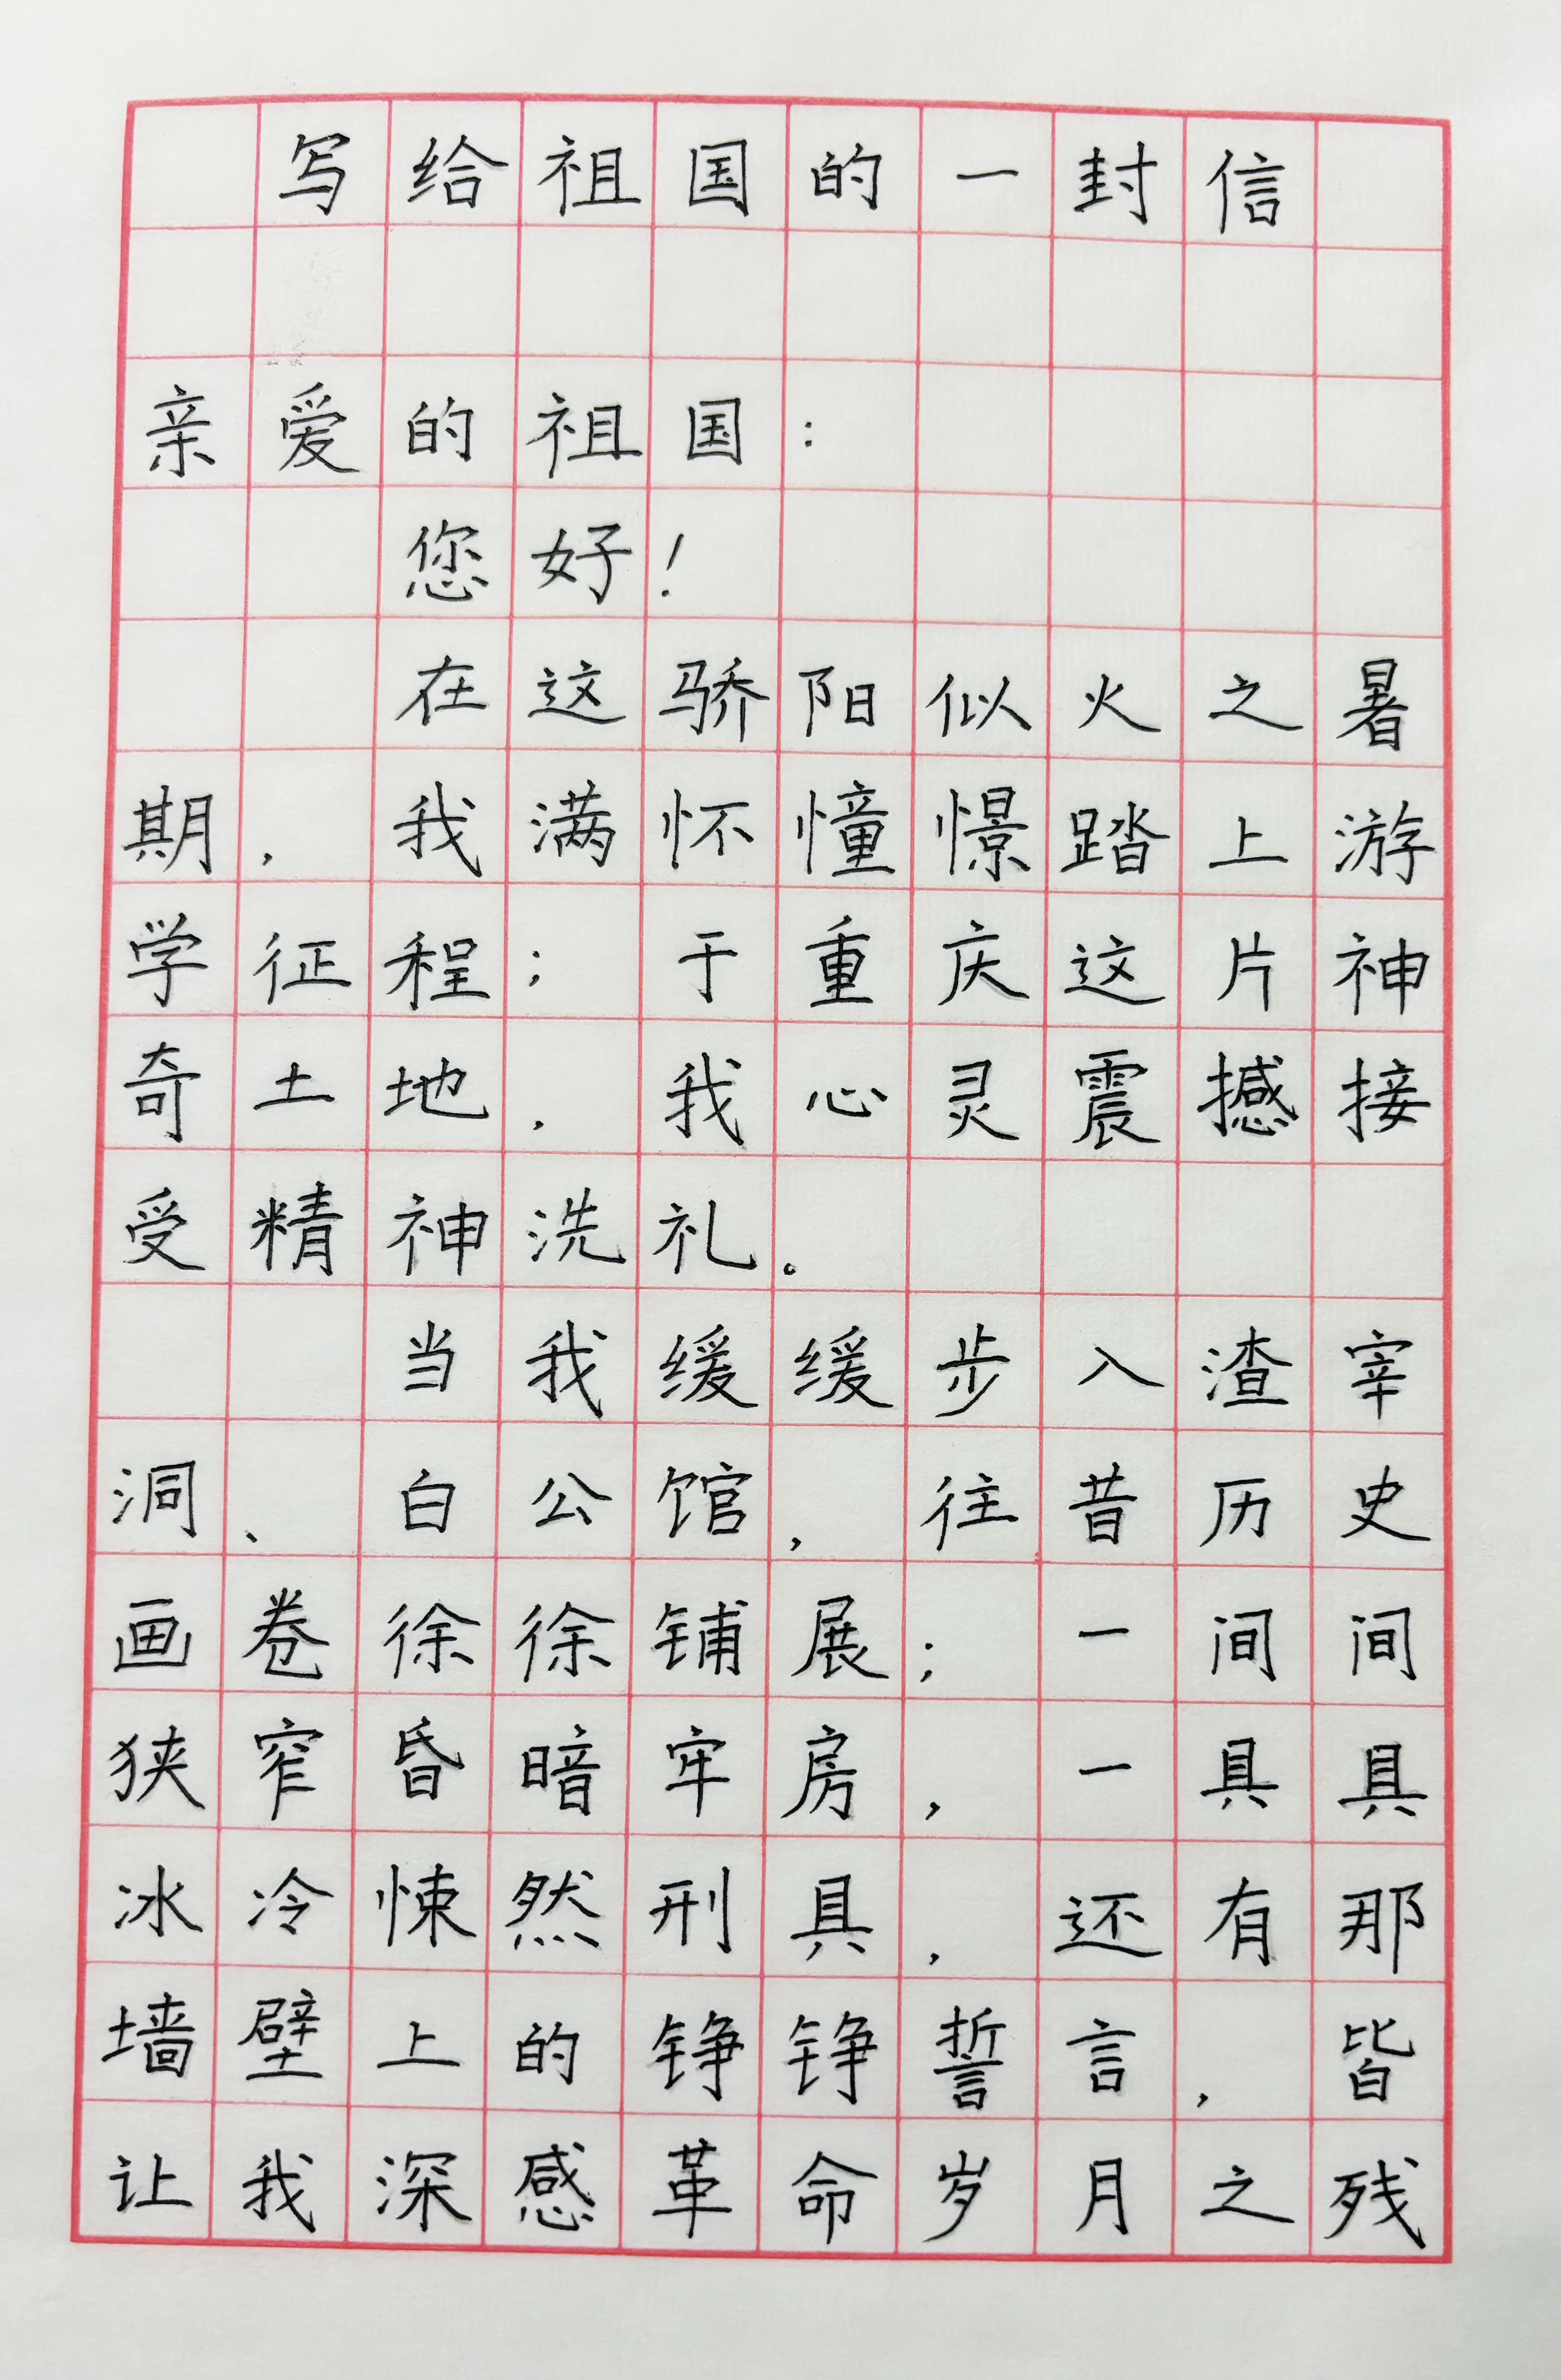 写给祖国的一封信
亲爱的祖国：
您好！
在这骄阳似火之暑
期，我满怀憧憬踏上游
学征程；于重庆这片神
奇土地，我心灵震撼接
受精神洗礼。
当我缓缓步入渣宰
洞、白公馆，往昔历史
画卷徐徐铺展；一间间
狭窄昏暗牢房，一具具
冰冷悚然刑具，还有那
墙壁上的铮铮誓言，皆
让我深感革命岁月之残